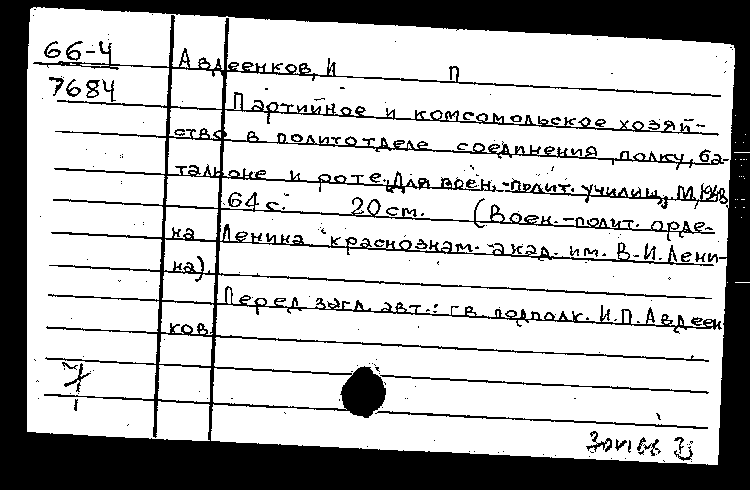 66-4
7684
Авдеенков, И П
Партийное и комсомольское хозяй-
ство в политотделе соединения, полку, ба-
тальоне и роте. Для воен.-полит. училищ, М, 1948
64 с. 20 см. (Воен.-полит. орде-
на Ленина краснознам. акад. им. В.И. Лени-
на).
Перед загл. авт.: гв. подполк. И.П. Авдеен
ков.